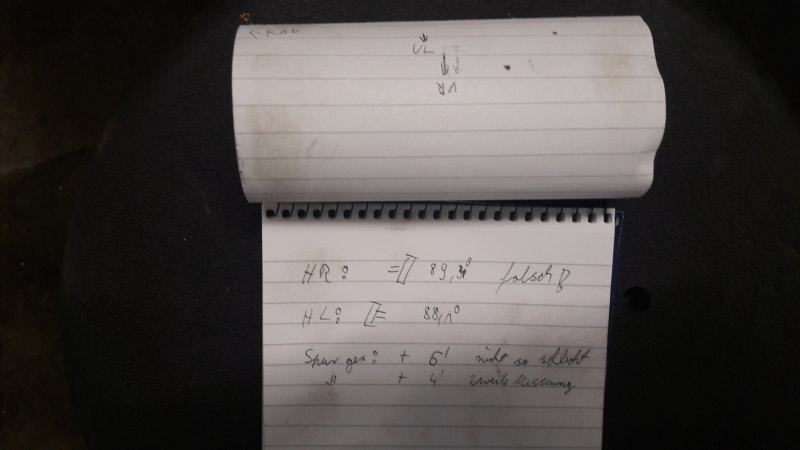 GRAD
VL
VR
HR: = 89,3° falsch!
HL: = 88,1°
Spur ges: + 6' nicht so schlecht
" + 4' zweite Messung